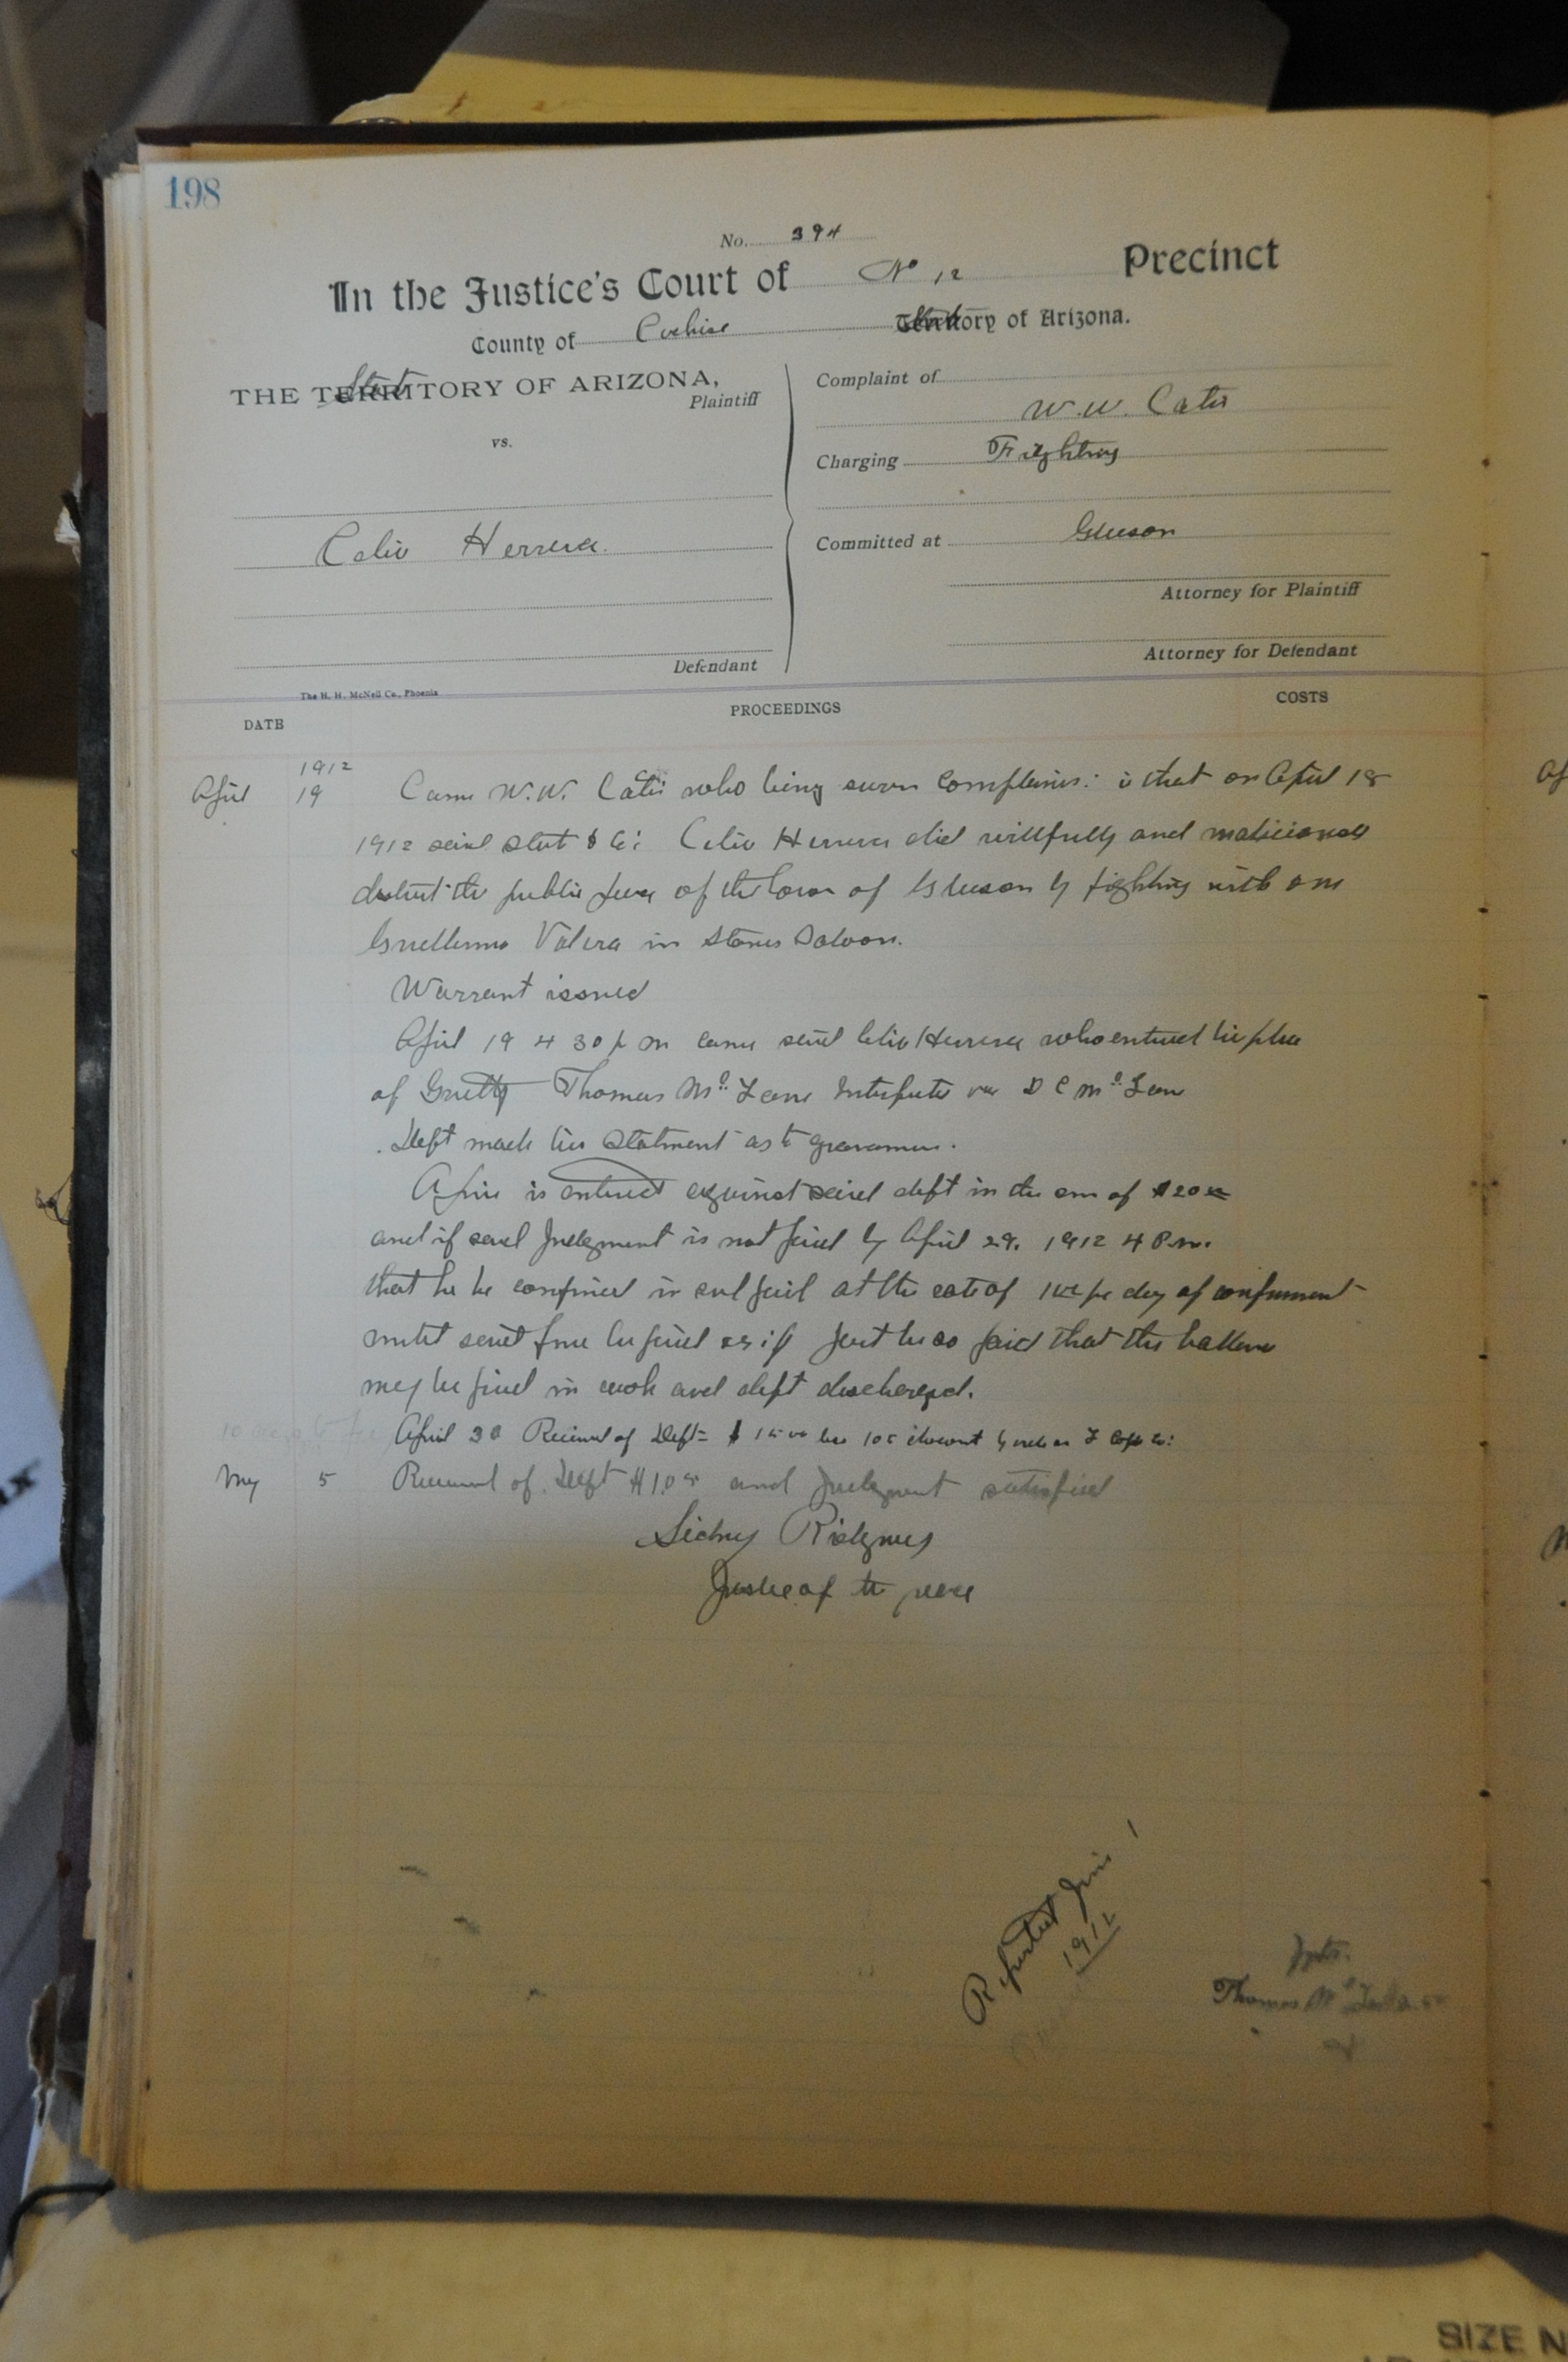 198
No. 394
In the Justice's Court of No 12 Precinct
County of Cochise State Territory of Arizona.
THE State TERRITORY OF ARIZONA,
Plaintiff
vs.
Celio Herrera.
Defendant
Complaint of
W. W. Cates
Charging Fighting
Committed at Gleeson
Attorney for Plaintiff
Attorney for Defendant
The H. H. McNeil Co., Phoenix
DATE PROCEEDINGS COSTS
1912
April 19 Came W. W. Cates who being sworn complains: that on April 18
1912 said State & Co: Celio Herrera did willfully and
disturb the public peace of the town of Gleeson by fighting with one
Guellermo Valera in Saloon.
Warrant issued
April 19 4 30 p m came said Celio Herrera who entered his plea
of Guilty Thomas Mc Lane Interpreter D C Mc Lane
Deft made his Statment as to
A fine is entered against said deft in the sum of $20
and if said Judgment is not paid by April 29. 1912 4 P.m.
that he be confined in jail at the rate of per day of confinment
until said fine be paid or if part be so paid that the ballance
may be paid in cash and deft discharged.
April 30 Received of Deft
May 5 Received of Deft and Judgment satisfied
Sidney
Justice of the peace
Reported June 1
1912
Thomas Mc
SIZE N